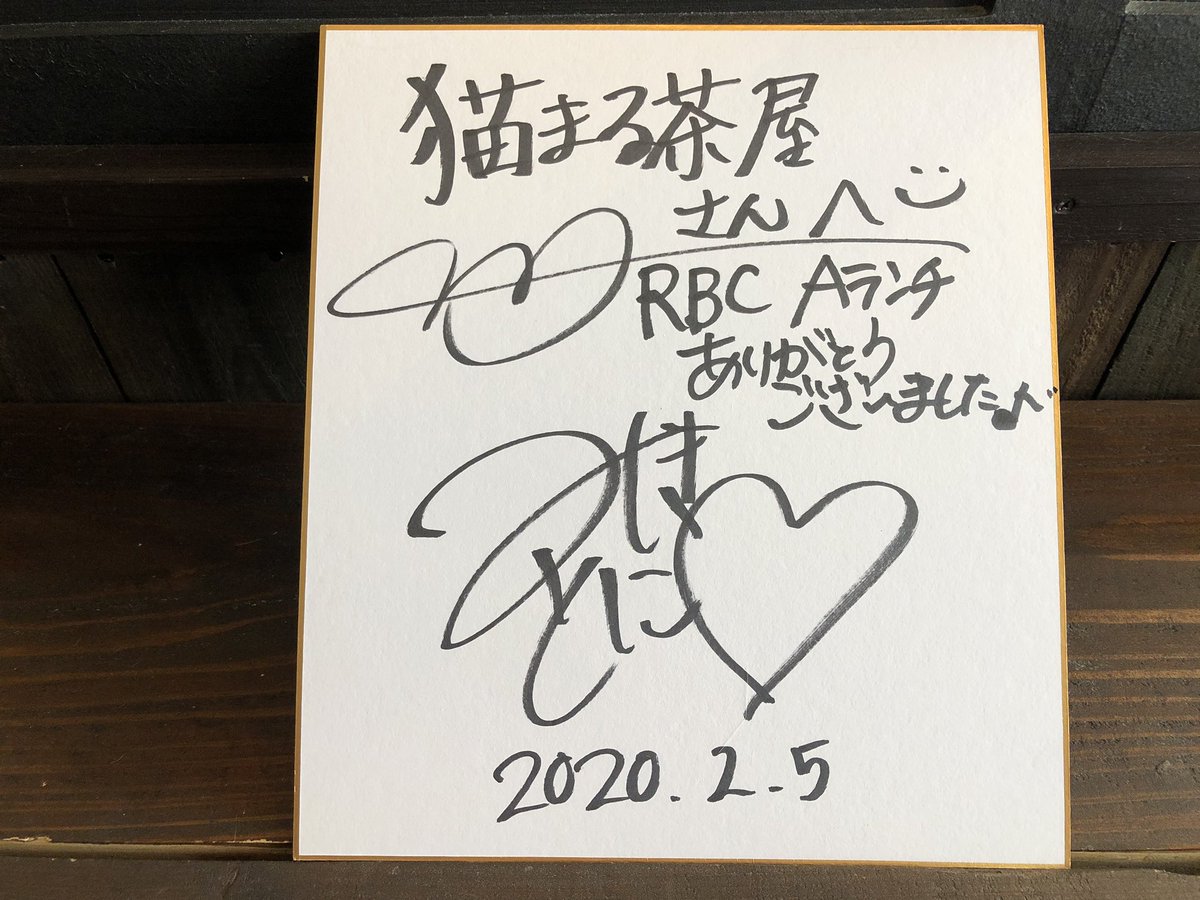 猫まる茶屋
さんへ
RBC Aランチ
ありがとう
ございました♪
2020.2.5